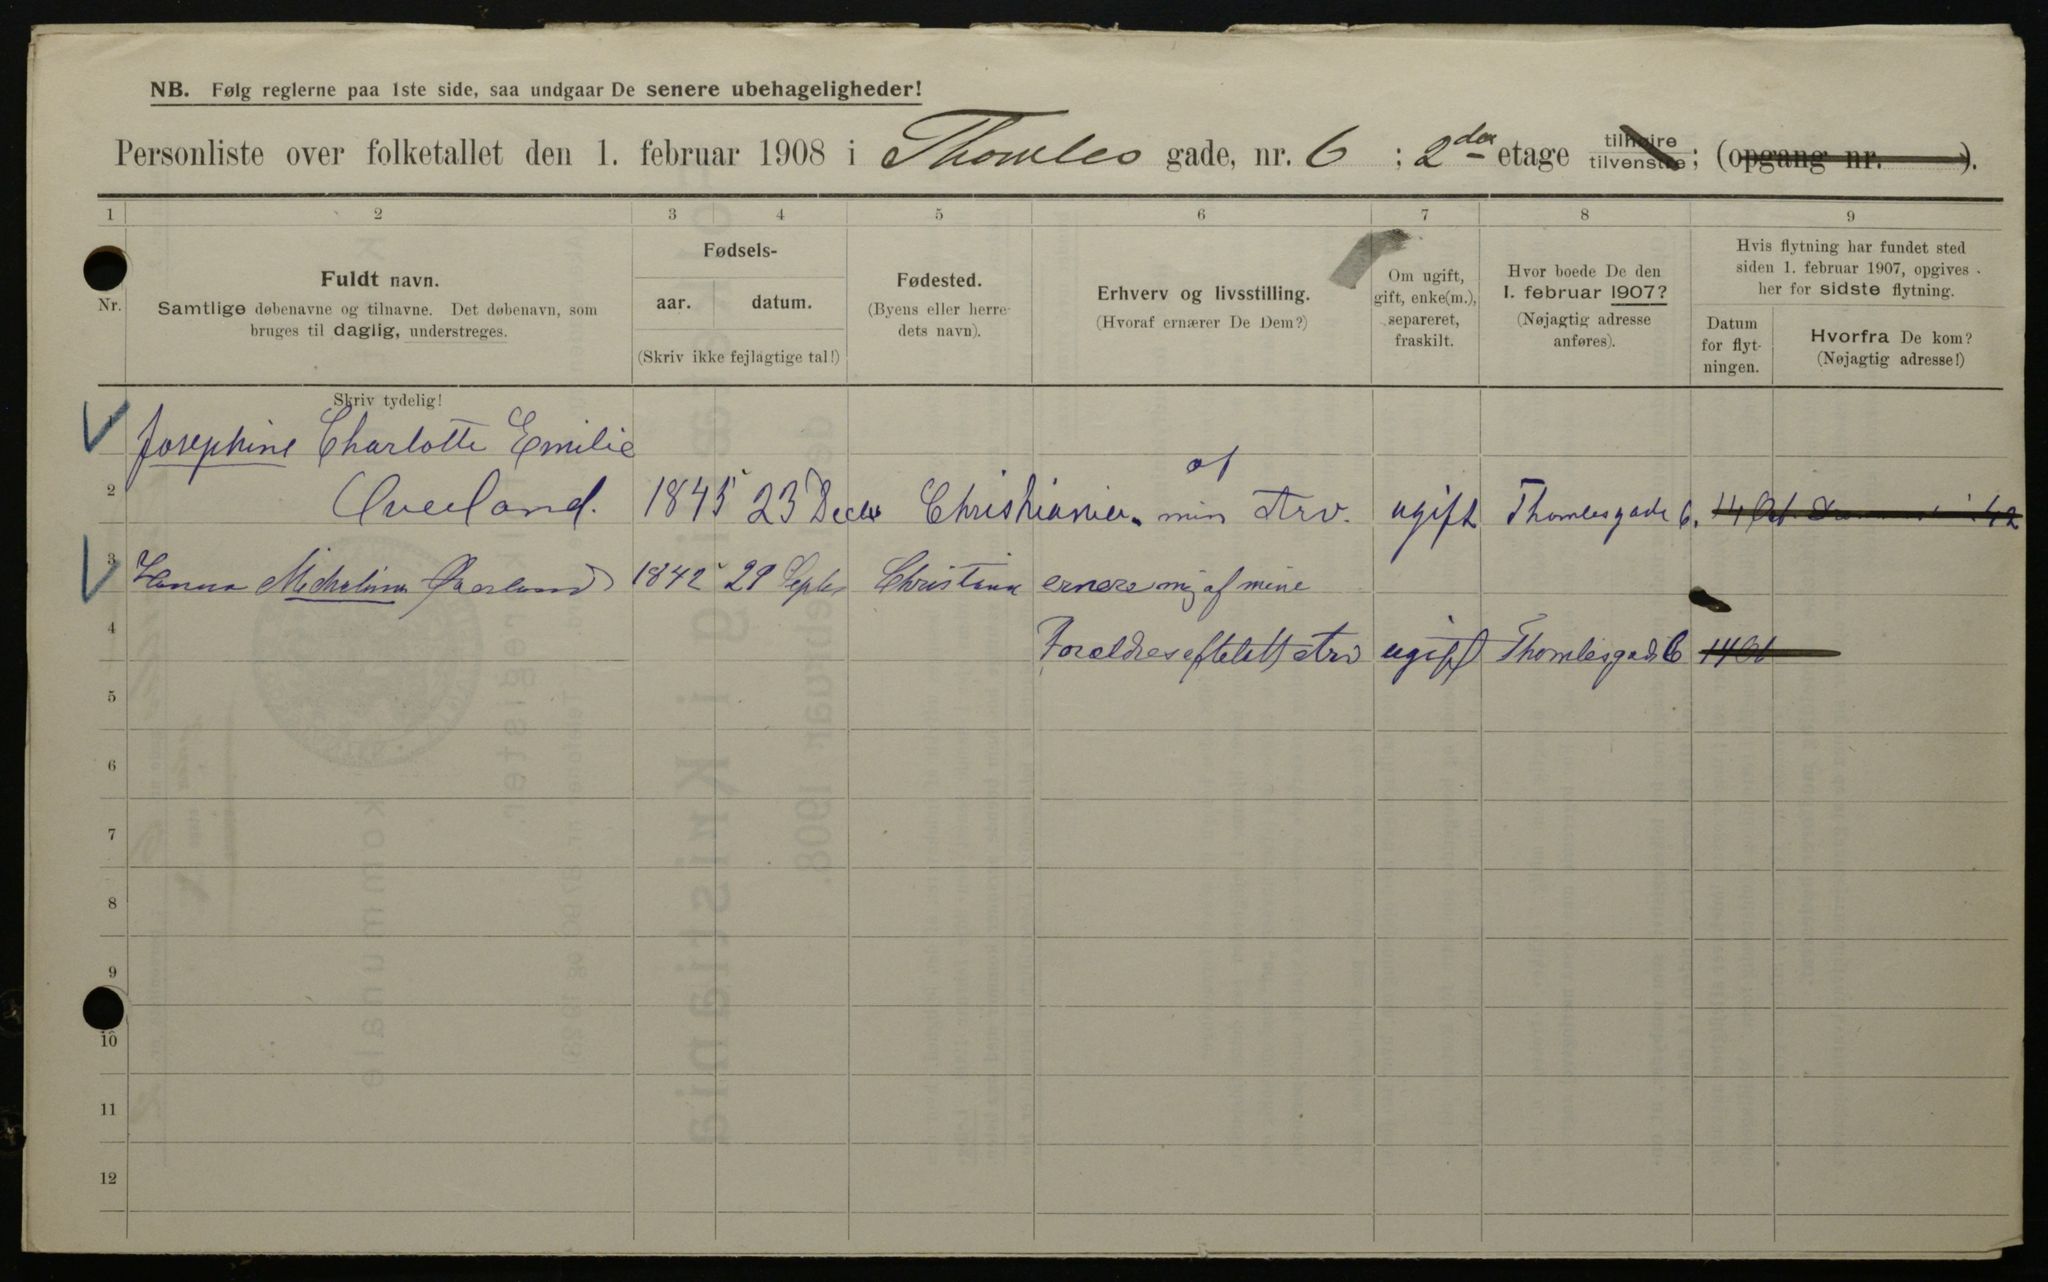 NB. Følg reglerne paa 1ste side, saa undgaar De senere ubehageligheder!
Personliste over folketallet den 1. februar 1908 i Thomles gade, nr. 6 ; 2den etage tilhøire tilvenstre ; (opgang nr. ).
1 2 3 4 5 6 7 8 9
Nr.
Fuldt navn.
Samtlige døbenavne og tilnavne. Det døbenavn, som
bruges til daglig, understreges.
Skriv tydelig!
Fødsels-
aar. datum.
(Skriv ikke fejlagtige tal!)
Fødested.
(Byens eller herre-
dets navn).
Erhverv og livsstilling.
(Hvoraf ernærer De Dem?)
Om ugift,
gift, enke(m.),
separeret,
fraskilt.
Hvor boede De den
1. februar 1907?
(Nøjagtig adresse
anføres).
Hvis flytning har fundet sted
siden 1. februar 1907, opgives
her for sidste flytning.
Datum
for flyt-
ningen.
Hvorfra De kom?
(Nøjagtig adresse!)
Josephine Charlotte Emilie
af
2 Overland. 1845 23 Decbr Christiania. min Arv. ugift Thomlesgade 6. 14 Okt 42
3 Hanna Michelina Øverland 1842 29 Septbr Christiania ernære mig af mine
4 Forældres efteladt Arv ugift Thomlesgade 6 14 Okt
5
6
7
8
9
10
11
12